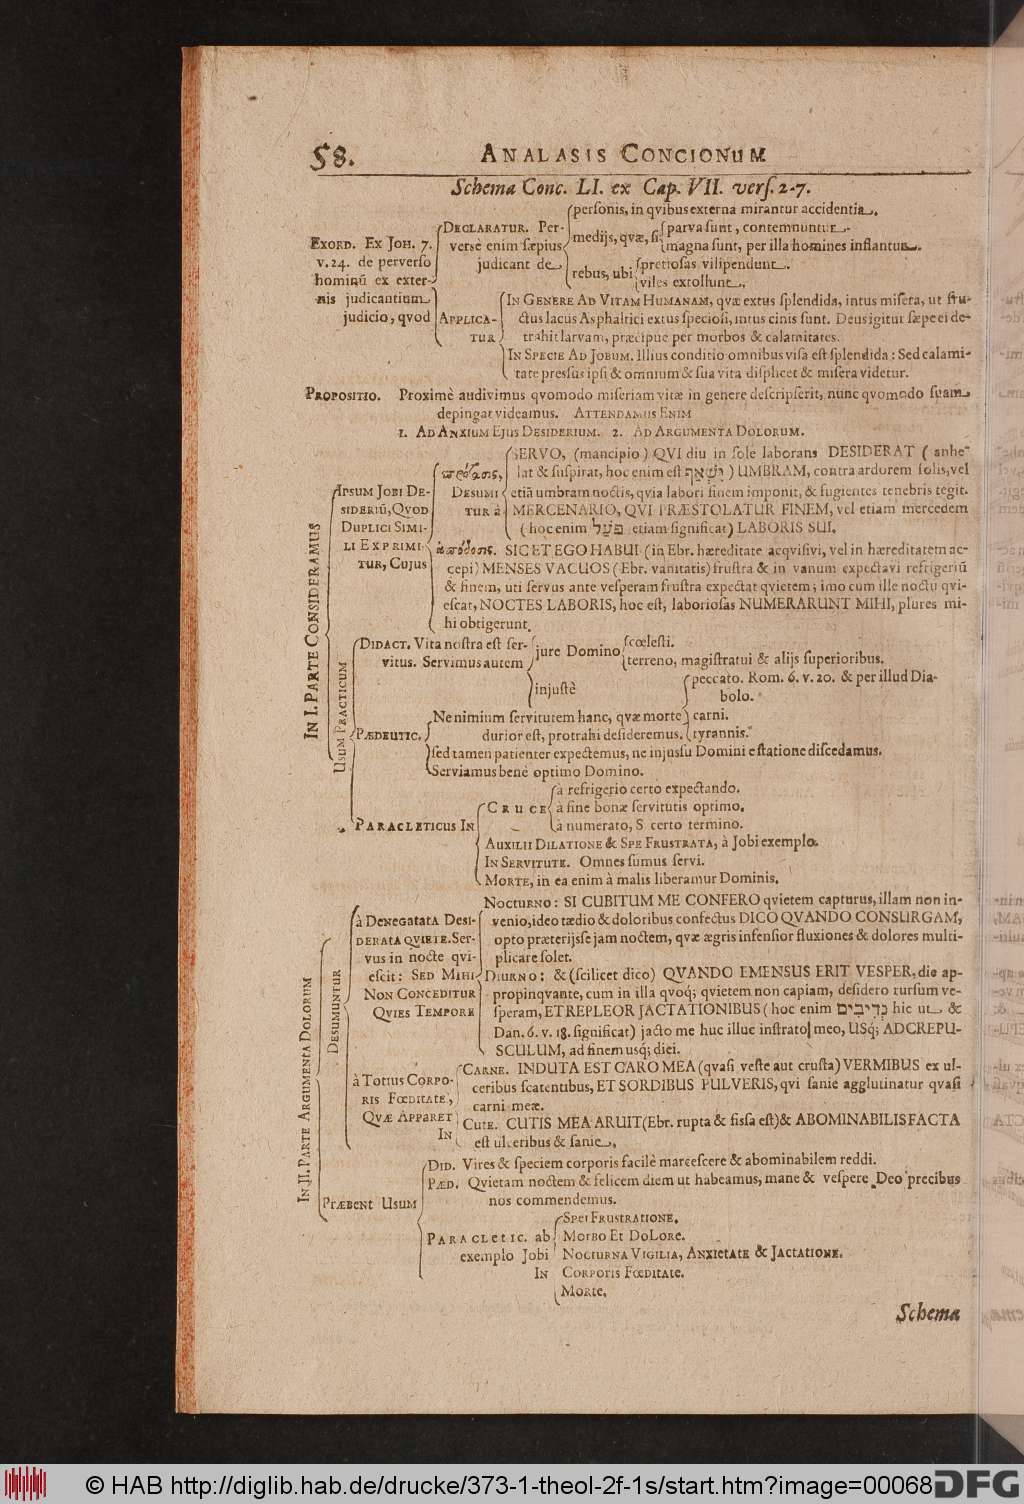 58.
ANALASIS CONCIONUM
Schema Conc. LI. ex Cap. VII. vers. 2-7.
EXORD. EX JOH. 7.
v. 24. de perverso
hominū ex exter-
nis judicantium
judicio, qvod
DECLARATUR. Per-
versè enim sæpius
judicant de
personis, in qvibus externa mirantur accidentia.
medijs, qvæ, si
parva sunt, contemnuntur.
magna sunt, per illa homines inflantur.
rebus, ubi
pretiosas vilipendunt.
viles extollunt.
APPLICA-
TUR
IN GENERE AD VITAM HUMANAM, qvæ extus splendida, intus misera, ut fru-
ctus lacus Asphaltici extus speciosi, intus cinis sunt. Deus igitur sæpe ei de-
trahit larvam, præcipuè per morbos & calamitates.
IN SPECIE AD JOBUM. Illius conditio omnibus visa est splendida: Sed calami-
tate pressus ipsi & omnium & sua vita displicet & misera videtur.
PROPOSITIO. Proximè audivimus qvomodo miseriam vitæ in genere descripserit, nunc qvomodo suam
depingat videamus. ATTENDAMUS ENIM
1. AD ANXIUM EJUS DESIDERIUM. 2. AD ARGUMENTA DOLORUM.
IN I. PARTE CONSIDERAMUS
IPSUM JOBI DE-
SIDERIŪ, QVOD
DUPLICI SIMI-
LI EXPRIMI-
TUR, CUJUS
πρότασις,
DESUMI
TUR à
SERVO, (mancipio) QVI diu in sole laborans DESIDERAT (anhe-
lat & suspirat, hoc enim est יִשְׁאַף) UMBRAM, contra ardorem solis, vel
etiā umbram noctis, qvia labori finem imponit, & fugientes tenebris tegit.
MERCENARIO, QVI PRÆSTOLATUR FINEM, vel etiam mercedem
(hoc enim פֹּעַל etiam significat) LABORIS SUI.
ἀπόδοσις. SIC ET EGO HABUI (in Ebr. hæreditate acqvisivi, vel in hæreditatem ac-
cepi) MENSES VACUOS (Ebr. vanitatis) frustra & in vanum expectavi refrigeriū
& finem, uti servus ante vesperam frustra expectat qvietem; imo cum ille noctu qvi-
escat, NOCTES LABORIS, hoc est, laboriosas NUMERARUNT MIHI, plures mi-
hi obtigerunt.
USUM PRACTICUM
DIDACT. Vita nostra est ser-
vitus. Servimus autem
jure Domino
cœlesti.
terreno, magistratui & alijs superioribus.
injustè
peccato. Rom. 6. v. 20. & per illud Dia-
bolo.
PÆDEUTIC.
Ne nimium servitutem hanc, qvæ morte
durior est, protrahi desideremus.
carni.
tyrannis.
sed tamen patienter expectemus, ne injussu Domini e statione discedamus.
Serviamus benè optimo Domino.
PARACLETICUS IN
CRUCE
à refrigerio certo expectando.
à fine bonæ servitutis optimo.
à numerato, S certo termino.
AUXILII DILATIONE & SPE FRUSTRATA, à Jobi exemplo.
IN SERVITUTE. Omnes sumus servi.
MORTE, in ea enim à malis liberamur Dominis.
IN II. PARTE ARGUMENTA DOLORUM
DESUMUNTUR
à DENEGATATA DESI-
DERATA QVIETE. Ser-
vus in nocte qvi-
escit: SED MIHI
NON CONCEDITUR
QVIES TEMPORE
NOCTURNO: SI CUBITUM ME CONFERO qvietem capturus, illam non in-
venio, ideo tædio & doloribus confectus DICO QVANDO CONSURGAM,
opto præterijsse jam noctem, qvæ ægris infensior fluxiones & dolores multi-
plicare solet.
DIURNO: & (scilicet dico) QVANDO EMENSUS ERIT VESPER, die ap-
propinqvante, cum in illa qvoq; qvietem non capiam, desidero rursum ve-
speram, ET REPLEOR JACTATIONIBUS (hoc enim נְדֻדִים hic ut &
Dan. 6. v. 18. significat) jacto me huc illuc in strato meo, USq; AD CREPU-
SCULUM, ad finem usq; diei.
à TOTIUS CORPO-
RIS FŒDITATE,
QVÆ APPARET
IN
CARNE. INDUTA EST CARO MEA (qvasi veste aut crusta) VERMIBUS ex ul-
ceribus scatentibus, ET SORDIBUS PULVERIS, qvi sanie agglutinatur qvasi
carni meæ.
CUTE. CUTIS MEA ARUIT (Ebr. rupta & fissa est) & ABOMINABILIS FACTA
est ulceribus & sanie.
PRÆBENT USUM
DID. Vires & speciem corporis facilè marcescere & abominabilem reddi.
PÆD. Qvietam noctem & felicem diem ut habeamus, mane & vespere Deo precibus
nos commendemus.
PARACLETIC. ab
exemplo Jobi
IN
SPEI FRUSTRATIONE.
MORBO ET DOLORE.
NOCTURNA VIGILIA, ANXIETATE & JACTATIONE.
CORPORIS FŒDITATE.
MORTE.
Schema
© HAB http://diglib.hab.de/drucke/373-1-theol-2f-1s/start.htm?image=00068
DFG